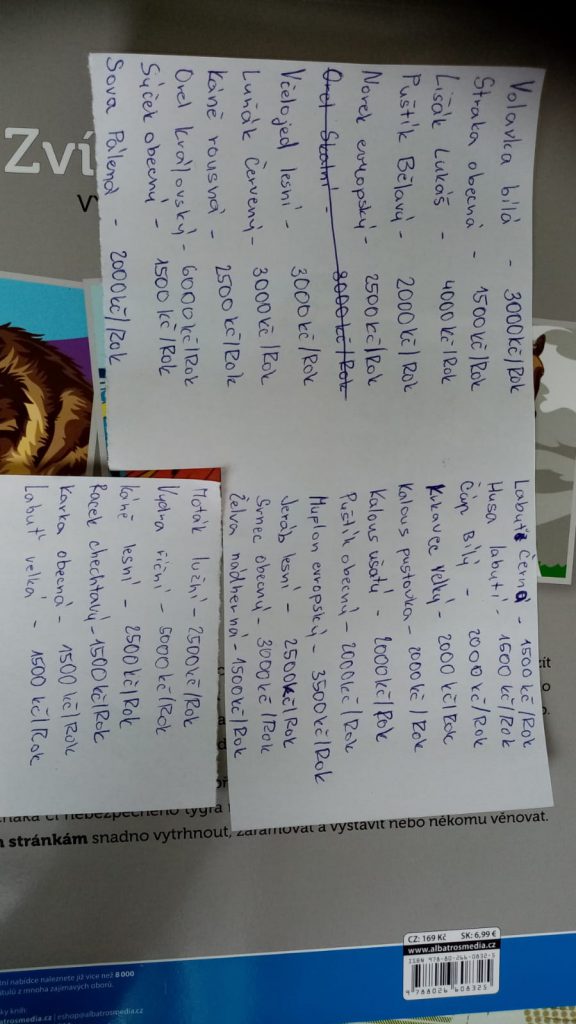 Volavka bílá - 3000 Kč/Rok
Straka obecná - 1500 Kč/Rok
Lišák Lukáš - 4000 Kč/Rok
Puštík Bělavý - 2000 Kč/Rok
Norek evropský - 2500 Kč/Rok
Orel Skalní - 8000 Kč/Rok
Včelojed lesní - 3000 Kč/Rok
Luňák Červený - 3000 Kč/Rok
Káně rousná - 2500 Kč/Rok
Orel Královský - 6000 Kč/Rok
Sýček obecný - 1500 Kč/Rok
Sova Pálená - 2000 Kč/Rok
Labuť černá - 1500 Kč/Rok
Husa labutí - 1500 Kč/Rok
Čáp Bílý - 2000 Kč/Rok
Krkavec velký - 2000 Kč/Rok
Kalous pustovka - 2000 Kč/Rok
Kalous ušatý - 2000 Kč/Rok
Puštík obecný - 2000 Kč/Rok
Muflon evropský - 3500 Kč/Rok
Jeřáb lesní - 2500 Kč/Rok
Srnec obecný - 3000 Kč/Rok
Želva nádherná - 1500 Kč/Rok
Moták lužní - 2500 Kč/Rok
Vydra říční - 5000 Kč/Rok
Káně lesní - 2500 Kč/Rok
Racek chechtavý - 1500 Kč/Rok
Kavka obecná - 1500 Kč/Rok
Labuť velká - 1500 Kč/Rok
Zví
nebezpečného tygra
stránkám snadno vytrhnout, zarámovat a vystavit nebo někomu věnovat.
CZ: 169 Kč SK: 6,99 €
www.albatrosmedia.cz
ISBN 978-80-266-0832-5
9 788026 608325
nabídce naleznete již více než 8 000
titulů z mnoha zajímavých oborů.
knih
albatrosmedia.cz | eshop@albatrosmedia.cz